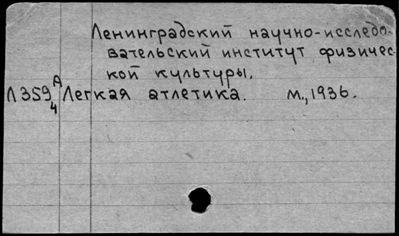 Ленинградский научно-исследо-
вательский институт физичес-
кой культуры.
Л359 А/4 Легкая атлетика. М., 1936.